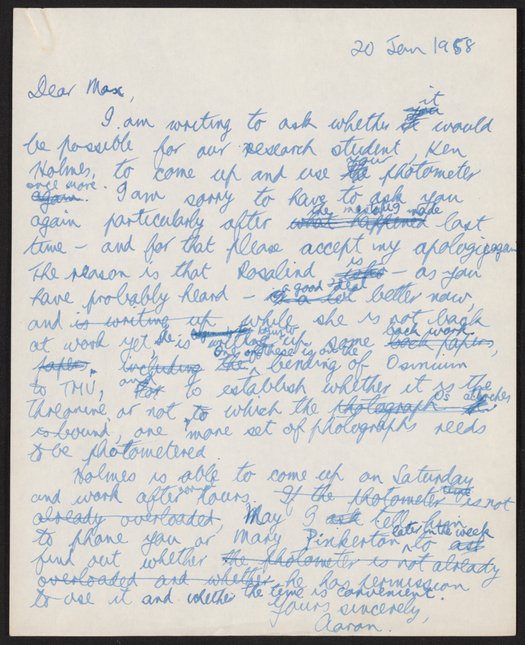 20 Jan 1958
Dear Max,
I am writing to ask whether it would
be possible for our research student, Ken
Holmes, to come up and use your photometer
once more. I am sorry to have to ask you
again particularly after the mistakes made last
time – and for that please accept my apologies again
The reason is that Rosalind is – as you
have probably heard – a good deal better now
and is writing up while she is not back
at work yet, she is writing up some back work
papers, including One of these is on the bending of Osmium
to TMV, and to establish whether it is the
threonine or not to which the photograph Os attaches
is bound, one more set of photographs needs
to be photometered
Holmes is able to come up on Saturday
and work after normal hours. If the photometer is not
already overloaded May I ask tell him
to phone you or Mary Pinkerton later in the week to
find out whether the photometer is not already
overloaded and whether he has permission
to use it and whether the time is convenient.
Yours sincerely,
Aaron.